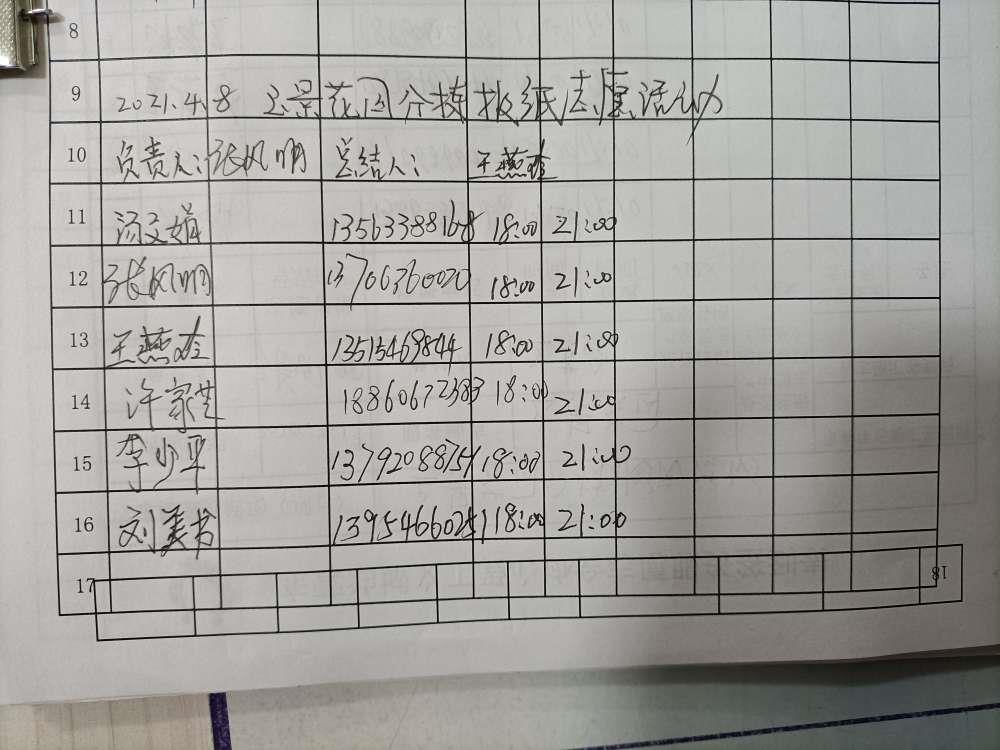 8
9 2021.4.8 玉景花园分拣报纸志愿活动
10 负责人:张风明 总结人: 王燕
11 汤文娟 13563388168 18:00 21:00
12 张风明 13706360020 18:00 21:00
13 王燕 13515469844 18:00 21:00
14 许家芝 18860672383 18:00 21:00
15 李少平 13792088754 18:00 21:00
16 刘美书 13954660251 18:00 21:00
17
18